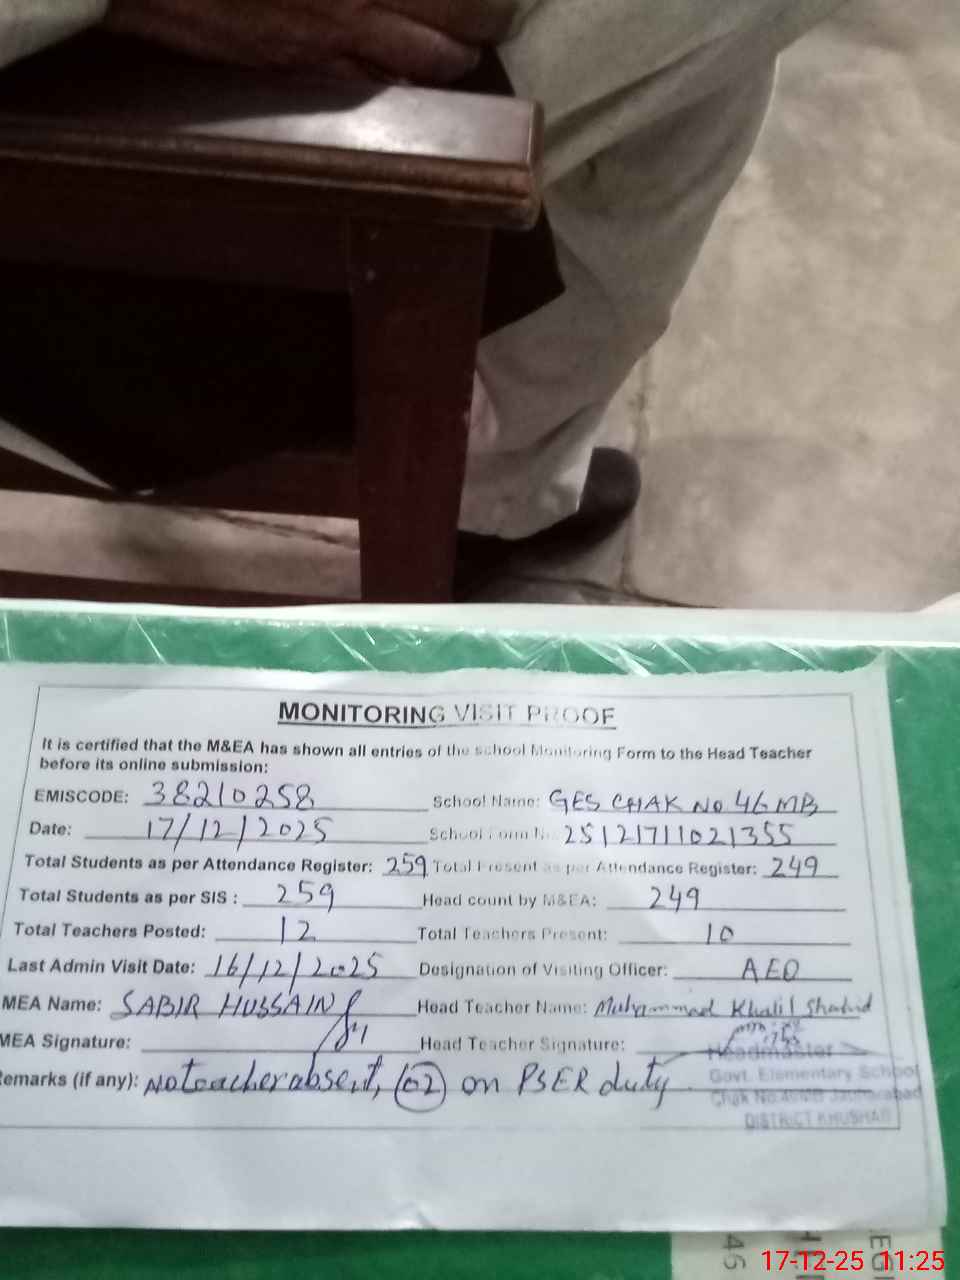 MONITORING VISIT PROOF
It is certified that the M&EA has shown all entries of the school Monitoring Form to the Head Teacher
before its online submission:
EMISCODE: 38210258 School Name: GES CHAK NO. 46 MB
Date: 17/12/2025 School Form No. 25121711021355
Total Students as per Attendance Register: 259 Total Present as per Attendance Register: 249
Total Students as per SIS : 259 Head count by M&EA: 249
Total Teachers Posted: 12 Total Teachers Present: 10
Last Admin Visit Date: 16/12/2025 Designation of Visiting Officer: AEO
MEA Name: SABIR HUSSAIN Head Teacher Name: Muhammad Khalil Shahid
MEA Signature: Head Teacher Signature:
Remarks (if any): No teacher absent, 02 on PSER duty
Headmaster
Govt. Elementary School
Chak No.46MB Jauharabad
DISTRICT KHUSHAB
46
17-12-25 11:25